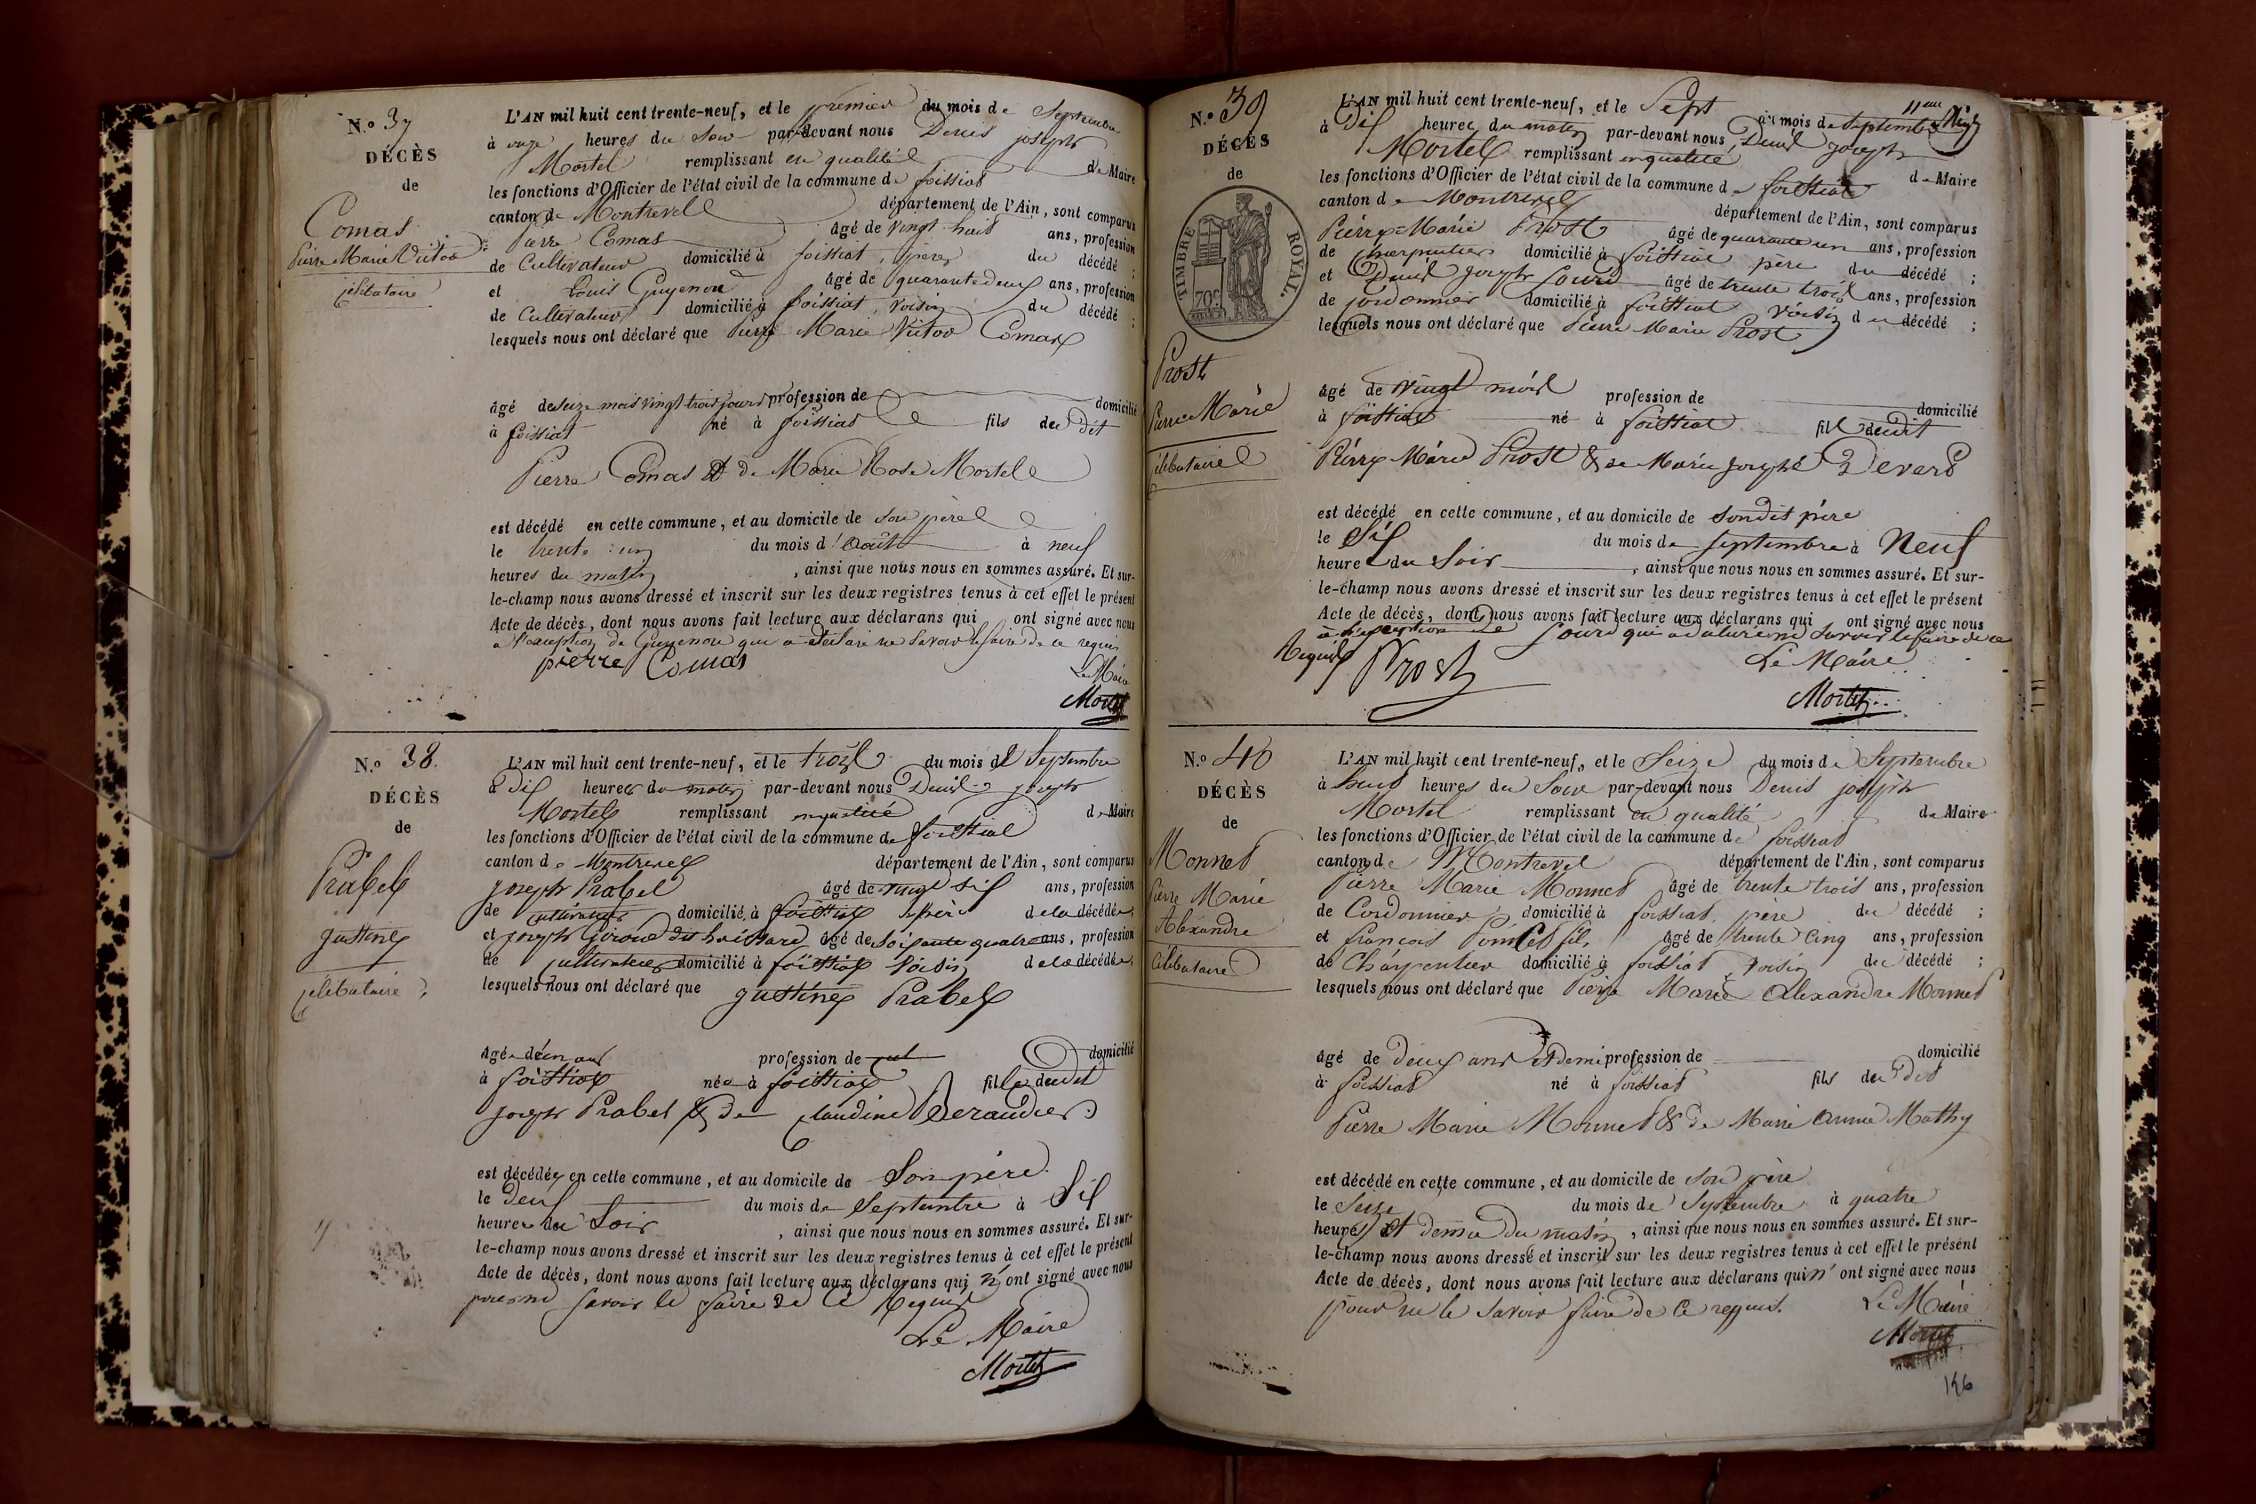 N.o 37
DÉCÈS
de
Comas
Pierre Marie Victor
célibataire
L'AN mil huit cent trente-neuf, et le premier du mois de Septembre
à onze heures du soir par-devant nous Denis joseph
Mortel remplissant en qualité de Maire
les fonctions d'Officier de l'état civil de la commune de foissiat
canton de Montrevel département de l'Ain, sont comparus
Pierre Comas âgé de vingt huit ans, profession
de Cultivateur domicilié à foissiat, père du décédé ;
et Louis Guyenon âgé de quarante deux ans, profession
de Cultivateur domicilié à foissiat, voisin du décédé ;
lesquels nous ont déclaré que Pierre Marie Victor Comas
âgé de seize mois vingt trois jours profession de domicilié
à foissiat né à foissiat fils du dit
Pierre Comas & de Marie Rose Mortel
est décédé en cette commune, et au domicile de son père
le trente un du mois d'Août à neuf
heures du matin, ainsi que nous nous en sommes assuré. Et sur-
le-champ nous avons dressé et inscrit sur les deux registres tenus à cet effet le présent
Acte de décès, dont nous avons fait lecture aux déclarans qui ont signé avec nous
a l'exception de Guyenon qui a déclaré ne savoir le faire de ce requis
pierre Comas
Le Maire
Mortel
N.o 38.
DÉCÈS
de
Prabel
justine
célibataire
L'AN mil huit cent trente-neuf, et le trois du mois de Septembre
à dix heures du matin par-devant nous Denis joseph
Mortel remplissant en qualité de Maire
les fonctions d'Officier de l'état civil de la commune de foissiat
canton de Montrevel département de l'Ain, sont comparus
joseph Prabel âgé de vingt six ans, profession
de cultivateur domicilié à foissiat père de la décédée ;
et joseph Giroud dit âgé de soixante quatre ans, profession
de cultivateur domicilié à foissiat voisin de la décédée ;
lesquels nous ont déclaré que justine Prabel
âgée d'un an profession de domicilié
à foissiat née à foissiat fille du dit
joseph Prabel & de claudine Beraudier
est décédée en cette commune, et au domicile de Son père
le deux du mois de Septembre à Six
heures du Soir, ainsi que nous nous en sommes assuré. Et sur-
le-champ nous avons dressé et inscrit sur les deux registres tenus à cet effet le présent
Acte de décès, dont nous avons fait lecture aux déclarans qui n'ont signé avec nous
pour ne savoir le faire de ce Requis
Le Maire
Mortel
N.o 39
DÉCÈS
de
TIMBRE ROYAL.
70c
Prost
Pierre Marie
célibataire
L'AN mil huit cent trente-neuf, et le Sept du mois de Septembre
à Dix heures du matin par-devant nous Denis joseph
Mortel remplissant en qualité de Maire
les fonctions d'Officier de l'état civil de la commune de foissiat
canton de Montrevel département de l'Ain, sont comparus
Pierre-Marie Prost âgé de quarante un ans, profession
de charpentier domicilié à foissiat père du décédé ;
et Denis joseph Sourd âgé de trente trois ans, profession
de cordonnier domicilié à foissiat voisin du décédé ;
lesquels nous ont déclaré que Pierre Marie Prost
âgé de vingt mois profession de domicilié
à foissiat né à foissiat fils dudit
Pierre Marie Prost & de Marie josephe Devard
est décédé en cette commune, et au domicile de Sondit père
le Six du mois de Septembre à Neuf
heures du Soir, ainsi que nous nous en sommes assuré. Et sur-
le-champ nous avons dressé et inscrit sur les deux registres tenus à cet effet le présent
Acte de décès, dont nous avons fait lecture aux déclarans qui ont signé avec nous
a l'exception de Sourd qui a déclaré ne savoir le faire de ce
Requis Prost
Le Maire
Mortel
N.o 40
DÉCÈS
de
Monnet
Pierre Marie
Alexandre
célibataire
L'AN mil huit cent trente-neuf, et le Seize du mois de Septembre
à huit heures du Soir par-devant nous Denis joseph
Mortel remplissant en qualité de Maire
les fonctions d'Officier de l'état civil de la commune de foissiat
canton de Montrevel département de l'Ain, sont comparus
Pierre Marie Monnet âgé de trente trois ans, profession
de Cordonnier domicilié à foissiat, père du décédé ;
et françois fils, âgé de trente cinq ans, profession
de Charpentier domicilié à foissiat, voisin du décédé ;
lesquels nous ont déclaré que Pierre Marie Alexandre Monnet
âgé de deux ans et demi profession de domicilié
à foissiat né à foissiat fils du dit
Pierre Marie Monnet & de Marie Annie Mathy
est décédé en cette commune, et au domicile de son père
le Seize du mois de Septembre à quatre
heures et demie du matin, ainsi que nous nous en sommes assuré. Et sur-
le-champ nous avons dressé et inscrit sur les deux registres tenus à cet effet le présent
Acte de décès, dont nous avons fait lecture aux déclarans qui n'ont signé avec nous
pour ne le savoir faire de ce requis.
Le Maire
Mortel
146